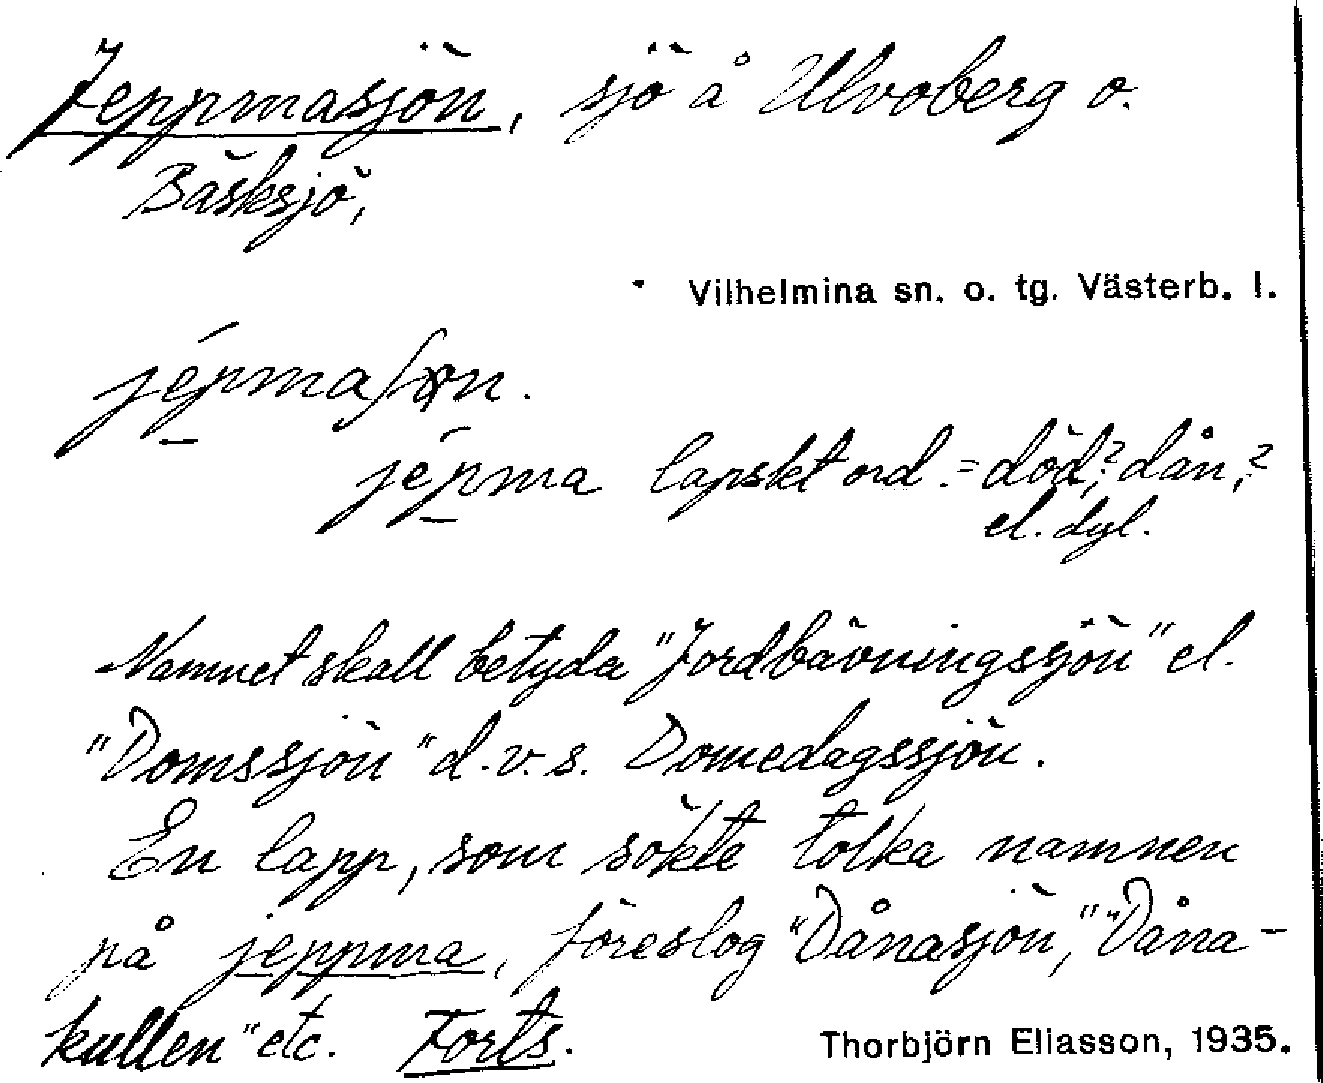 Jeppmasjön, sjö å Ulvoberg o.
Bäsksjö,
Vilhelmina sn. o. tg. Västerb. l.
jépmaʃɷn.
jépma lapskt ord = död,? dån,?
el. dyl.
Namnet skall betyda "Jordbävningsjön" el.
"Domssjön" d.v.s. Domedagssjön.
En lapp, som sökte tolka namnen
på jeppma, föreslog "Dånasjön," "Dåna-
kullen" etc. Forts.
Thorbjörn Eliasson, 1935.